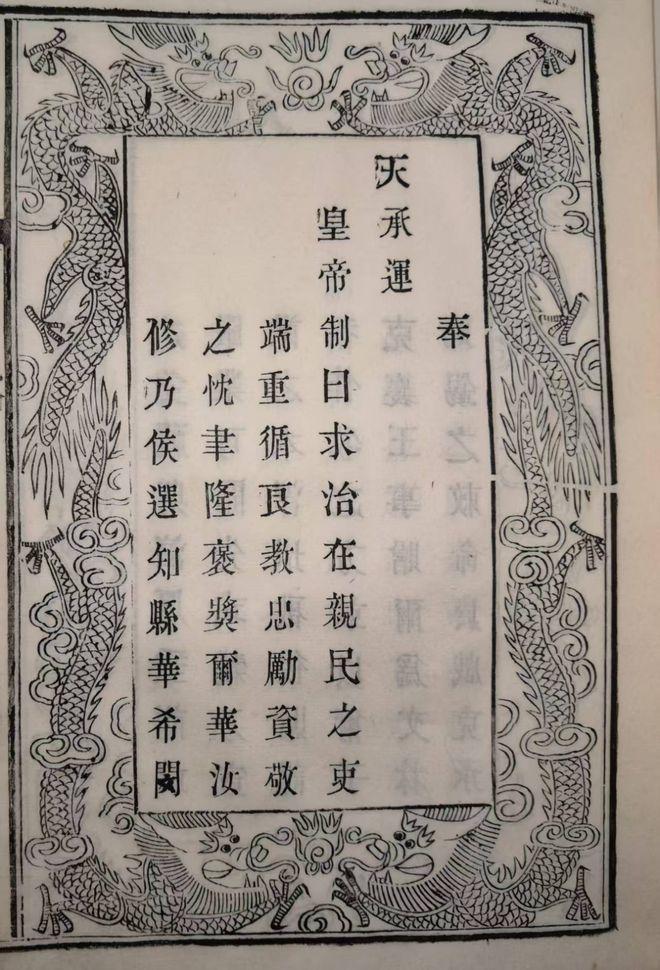 奉
天承運
皇帝制曰求治在親民之吏
端重循良教忠勵資敬
之忱聿隆褒獎爾華汝
修乃侯選知縣華希閔